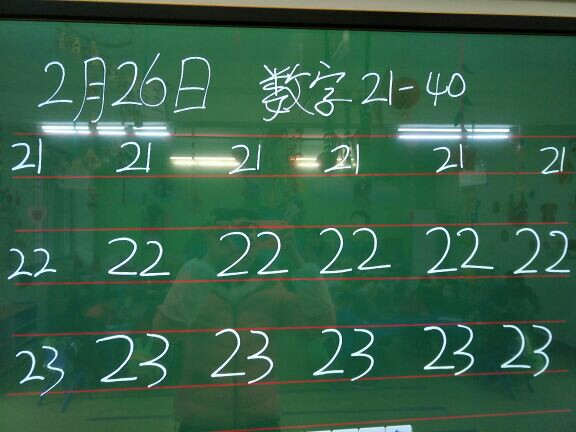 2月26日 数字21-40
21 21 21 21 21 21
22 22 22 22 22 22
23 23 23 23 23 23